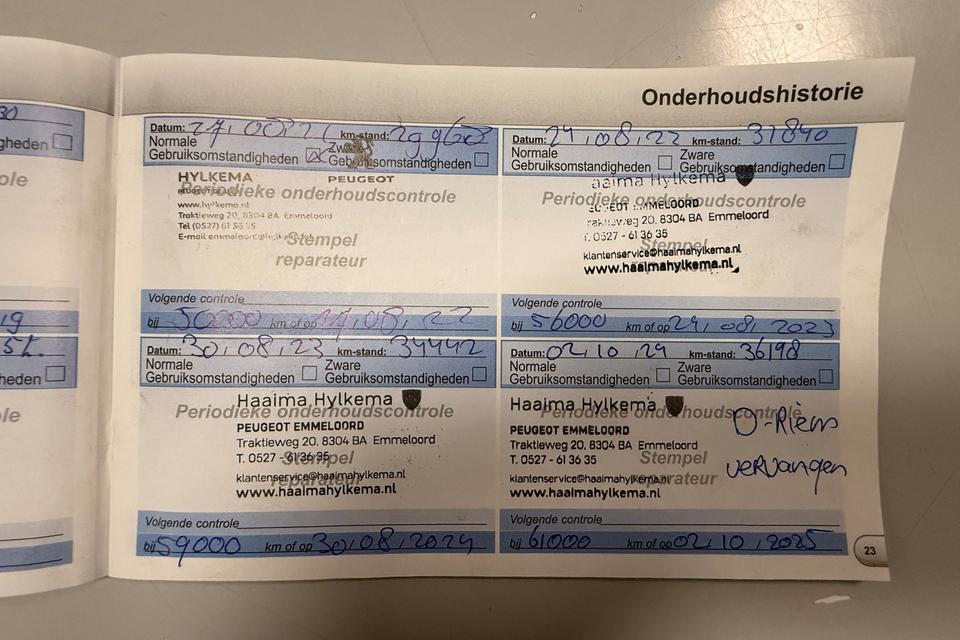 Onderhoudshistorie
30
gheden
ole
19
heden
ole
Datum: km-stand:
Normale Zware
Gebruiksomstandigheden Gebruiksomstandigheden
HYLKEMA PEUGEOT
Periodieke onderhoudscontrole
Traktieweg 20, 8304 BA Emmeloord
Tel (0527) 61 36 35
Stempel
reparateur
Volgende controle
bij 50000 km of op 27,08,22
Datum: 24,08,22 km-stand: 31840
Normale Zware
Gebruiksomstandigheden Gebruiksomstandigheden
aaima Hylkema
Periodieke onderhoudscontrole
EUGEOT EMMELOORD
raktieweg 20. 8304 BA Emmeloord
T. 0527 - 61 36 35
Stempel
klantenservice@haaimahylkema.nl
www.haaimahylkema.nl
Volgende controle
bij 56000 km of op 24,08,2023
Datum: 30,08,23 km-stand: 34442
Normale Zware
Gebruiksomstandigheden Gebruiksomstandigheden
Haaima Hylkema
Periodieke onderhoudscontrole
PEUGEOT EMMELOORD
Traktieweg 20, 8304 BA Emmeloord
T. 0527 - 61 36 35
Stempel
reparateur
klantenservice@haaimahylkema.nl
www.haaimahylkema.nl
Volgende controle
bij 59000 km of op 30,08,2024
Datum: 02,10,24 km-stand: 36198
Normale Zware
Gebruiksomstandigheden Gebruiksomstandigheden
Haaima Hylkema
Periodieke onderhoudscontrole
PEUGEOT EMMELOORD
Traktieweg 20, 8304 BA Emmeloord
T. 0527 - 61 36 35
Stempel
reparateur
klantenservice@haaimahylkema.nl
www.haaimahylkema.nl
D-Riem
vervangen
Volgende controle
bij 61000 km of op 02,10,2025
23